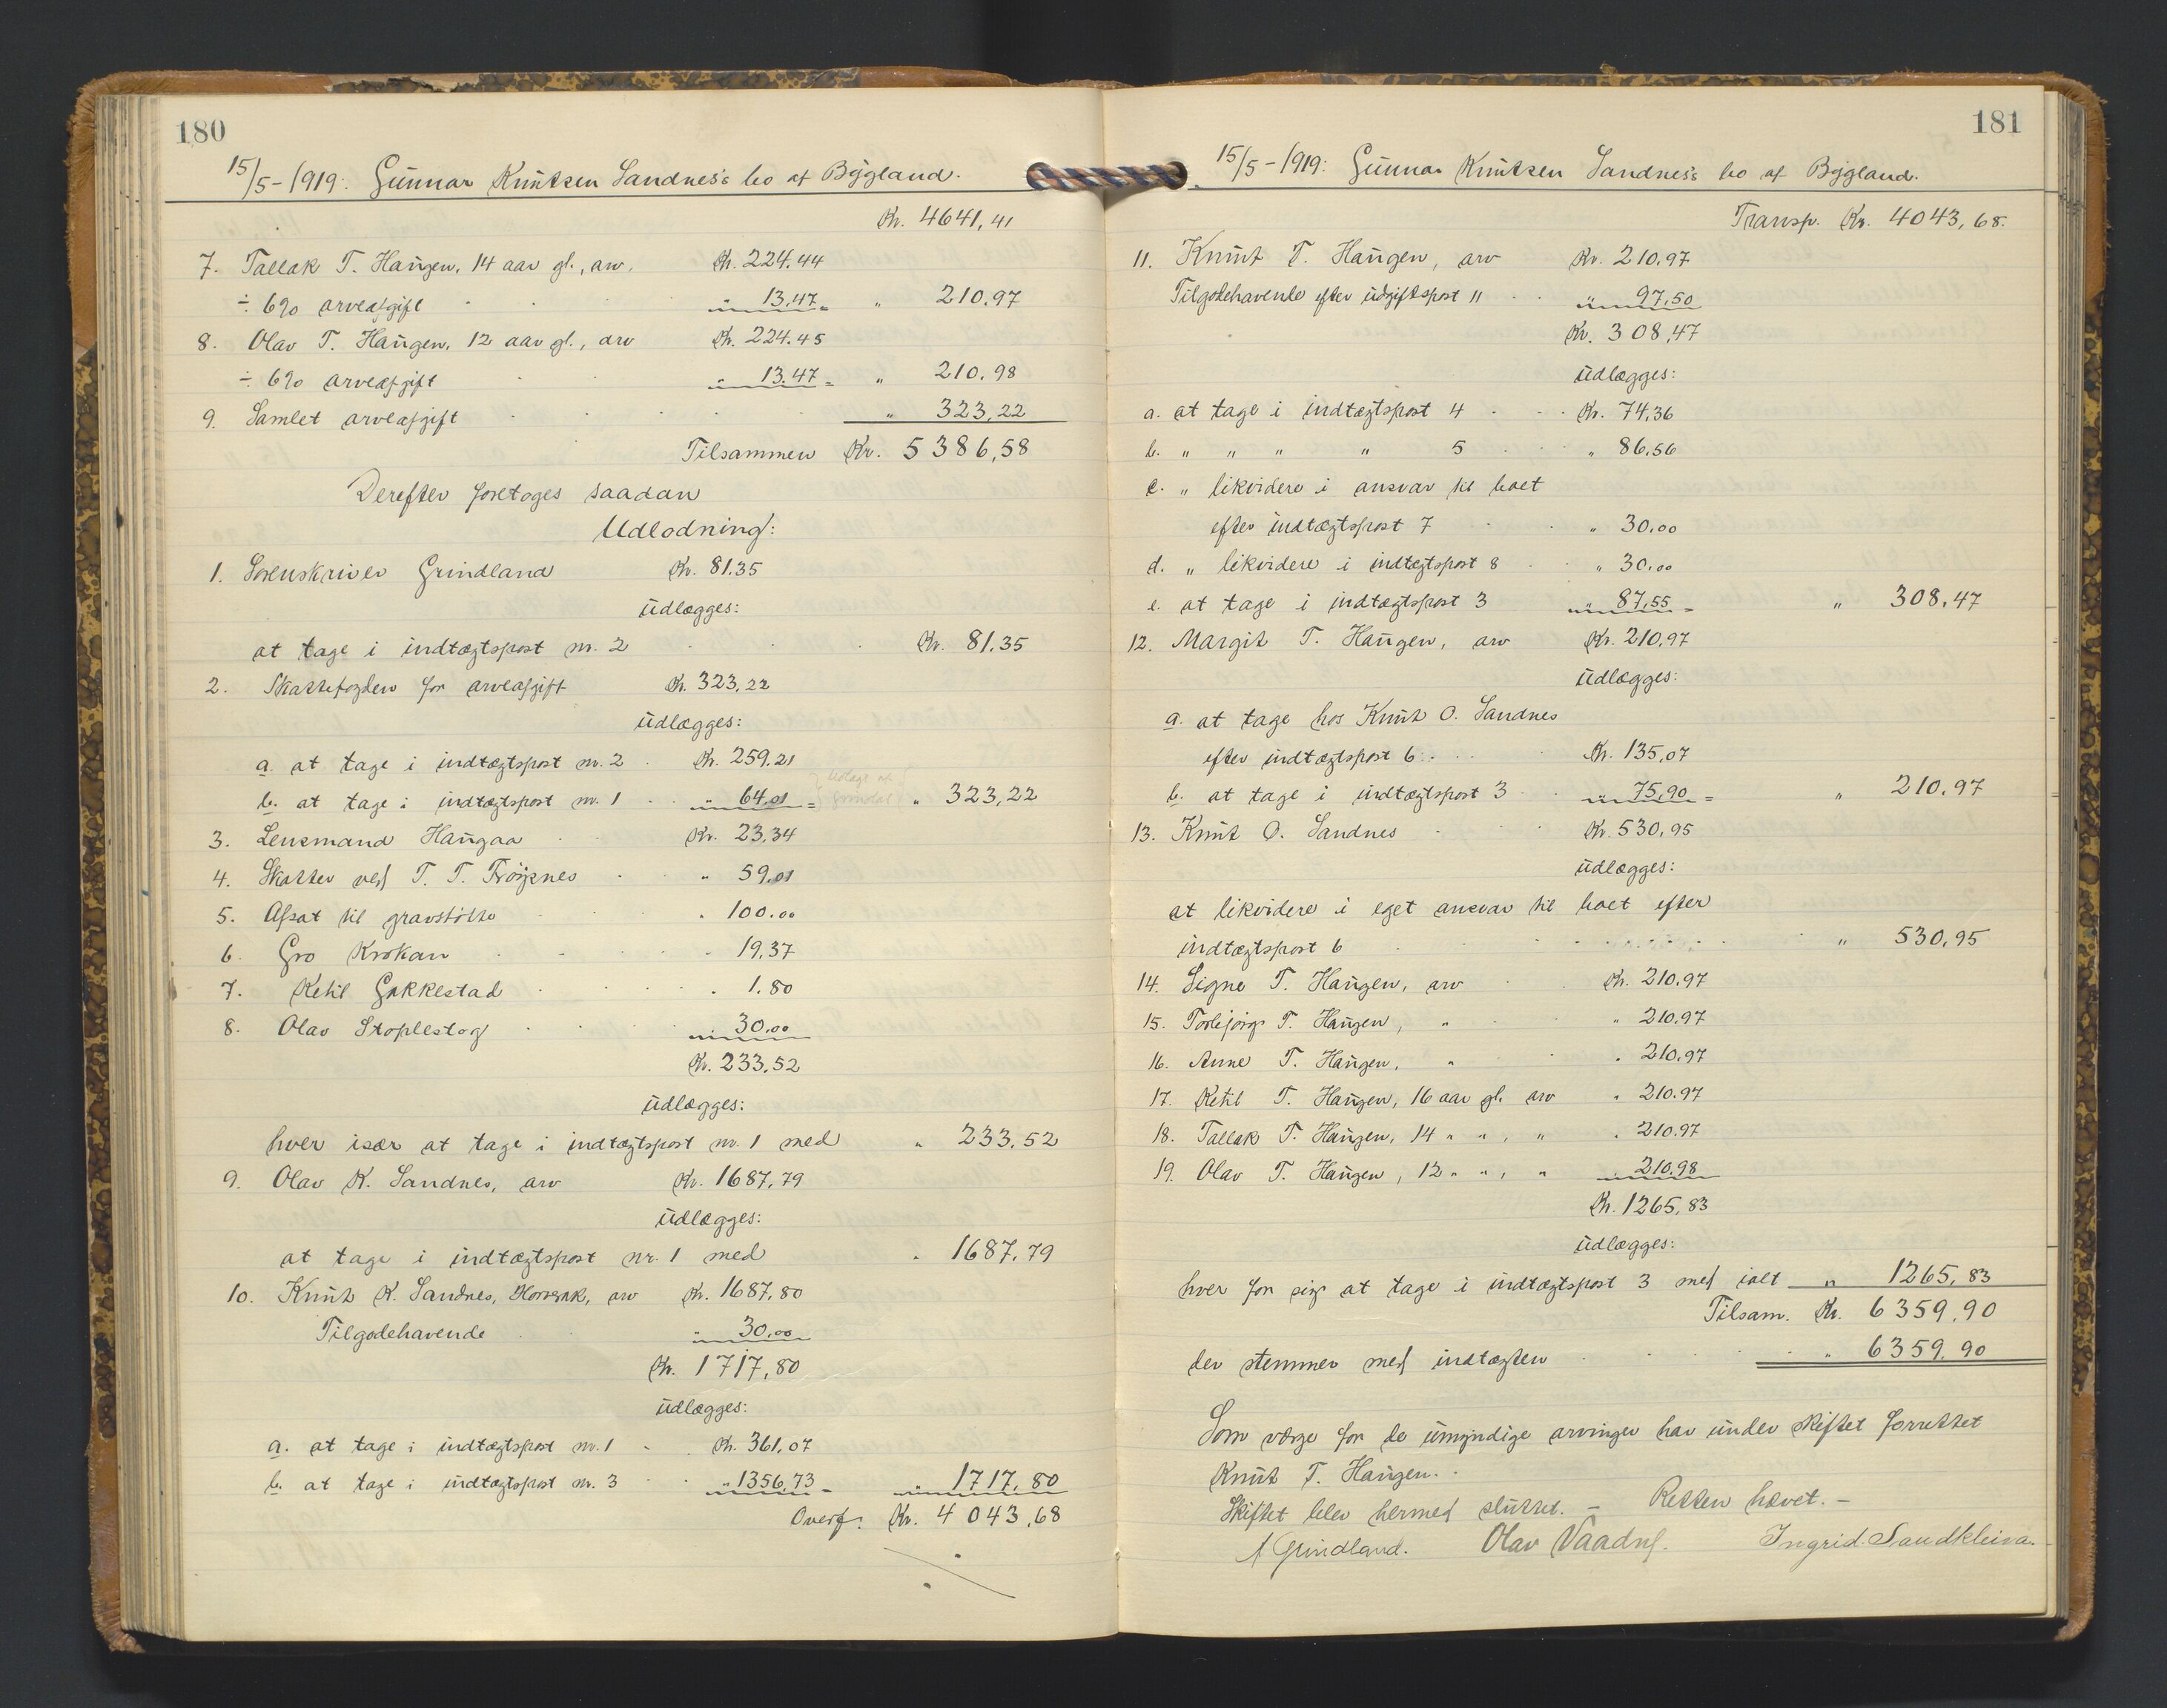 180
15/5-1919: Gunnar Knutsen Sandnes's bo af Bygland.
Kr. 4641,41
7. Tallak T. Haugen, 14 aar gl., arv. Kr. 224.44
÷ 6% arveafgift " 13,47 = " 210.97
8. Olav T. Haugen, 12 aar gl., arv Kr. 224.45
÷ 6% arveafgift " 13.47 = " 210.98
9. Samlet arveafgift " 323,22
Tilsammen Kr. 5386,58
Derefter foretoges saadan
Udlodning:
1. Sorenskriver Grindland Kr. 81.35
udlægges:
at tage i indtægtspost nr. 2 Kr. 81.35
2. Skattefogden for arveafgift Kr. 323,22
udlægges:
a. at tage i indtægtspost nr. 2 Kr. 259.21
b. at tage i indtægtspost nr. 1 " 64.01 = " 323,22
3. Lensmand Haugaa Kr. 23,34
4. Skatter ved T. T. Frøysnes " 59.01
5. Afsat til gravstøtte " 100.00
6. Gro Krokan " 19,37
7. Ketil Gakkestad " 1.80
8. Olav Stoplestog " 30,00
Kr. 233,52
udlægges:
hver især at tage i indtægtspost nr. 1 med " 233,52
9. Olav K. Sandnes, arv Kr. 1687,79
udlægges:
at tage i indtægtspost nr. 1 med " 1687,79
10. Knut K. Sandnes, arv Kr. 1687,80
Tilgodehavende " 30,00
Kr. 1717,80
udlægges:
a. at tage i indtægtspost nr. 1 Kr. 361,07
b. at tage i indtægtspost nr. 3 " 1356,73 = " 1717,80
Overf. Kr. 4043,68
181
15/5-1919: Gunnar Knutsen Sandnes's bo af Bygland.
Transp. Kr. 4043,68.
11. Knut T. Haugen, arv Kr. 210,97
Tilgodehavende efter udgiftspost 11 " 97,50
Kr. 308,47
udlægges:
a. at tage i indtægtspost 4 Kr. 74,36
b. " " " " 5 " 86,56
c. " likvidere i ansvar til boet
efter indtægtspost 7 " 30.00
d. " likvidere i indtægtspost 8 " 30.00
e. at tage i indtægtspost 3 " 87,55 = " 308,47
12. Margit T. Haugen, arv Kr. 210,97
udlægges:
a. at tage hos Knut O. Sandnes
efter indtægtspost 6 Kr. 135,07
b. at tage i indtægtspost 3 " 75,90 = " 210,97
13. Knut O. Sandnes Kr. 530,95
udlægges:
at likvidere i eget ansvar til boet efter
indtægtspost 6 " 530,95
14. Signe T. Haugen, arv Kr. 210,97
15. Torbjørg T. Haugen, " " 210,97
16. Anne T. Haugen, " " 210,97
17. Ketil T. Haugen, 16 aar gl. arv " 210.97
18. Tallak T. Haugen, 14 " " , " " 210.97
19. Olav T. Haugen, 12 " " , " " 210.98
Kr. 1265,83
udlægges:
hver for sig at tage i indtægtspost 3 med ialt " 1265,83
Tilsam. Kr. 6359,90
der stemmer med indtægten " 6359,90
Som værge for de umyndige arvinger har under skiftet forrettet
Knut T. Haugen.
Skiftet blev hermed sluttet. – Retten hævet. –
A Grindland. Olav Vaadnes. Ingrid Sandkleiva.